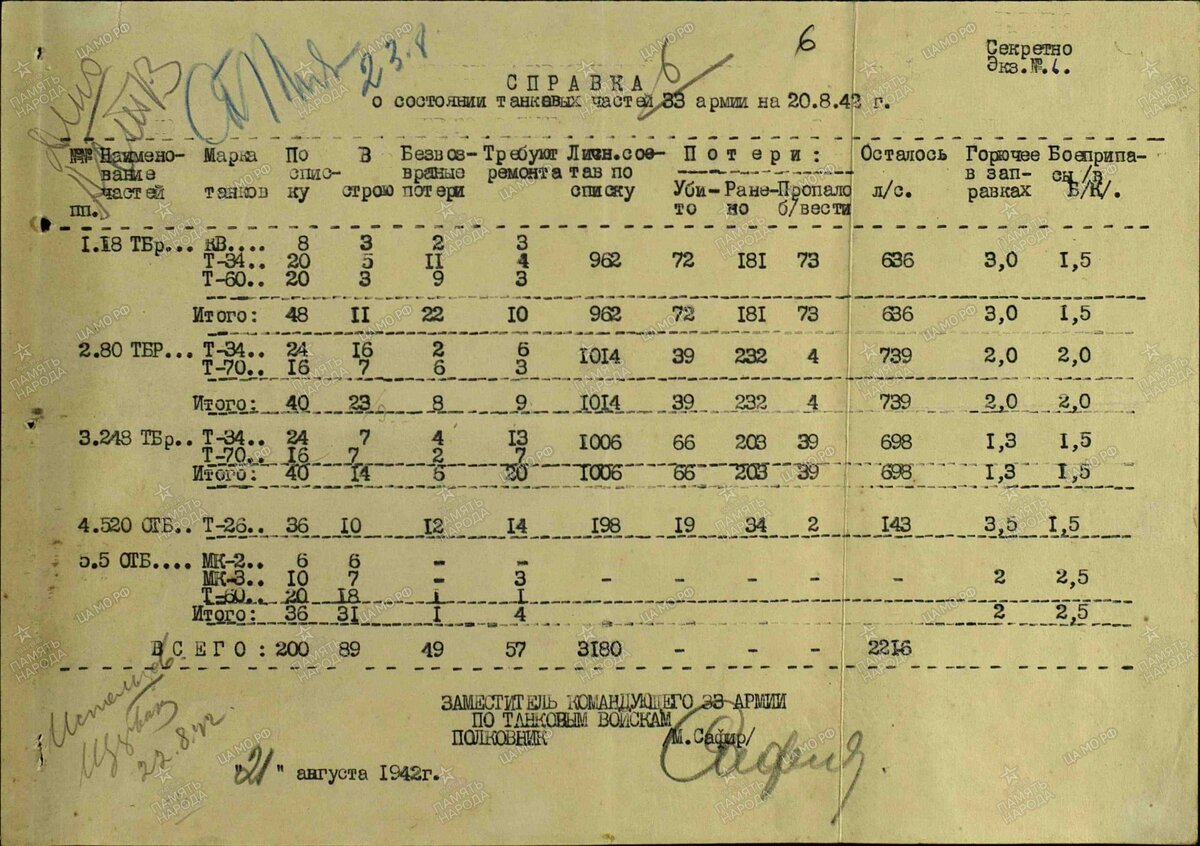 6
Секретно
Экз.№.1.
23.8
6
СПРАВКА
о состоянии танковых частей 33 армии на 20.8.42 г.
№№ Наимено- Марка По В Безвоз- Требуют Личн.сос- Потери: Осталось Горючее Боеприпа-
вание спис- вратные ремонта тав по в зап- сы /в
частей танков ку строю потери списку Уби- Ране- Пропало л/с. равках Б/К/.
пп. то но б/вести
1.18 ТБр... КВ.... 8 3 2 3
Т-34.. 20 5 11 4 962 72 181 73 636 3,0 1,5
Т-60.. 20 3 9 3
Итого: 48 11 22 10 962 72 181 73 636 3,0 1,5
2.80 ТБР... Т-34.. 24 16 2 6 1014 39 232 4 739 2,0 2,0
Т-70.. 16 7 6 3
Итого: 40 23 8 9 1014 39 232 4 739 2,0 2,0
3.248 ТБр.. Т-34.. 24 7 4 13 1006 66 203 39 698 1,3 1,5
Т-70.. 16 7 2 7
Итого: 40 14 6 20 1006 66 203 39 698 1,3 1,5
4.520 ОТБ.. Т-26.. 36 10 12 14 198 19 34 2 143 3,5 1,5
5.5 ОТБ.... МК-2.. 6 6 - -
МК-3.. 10 7 - 3 - - - - - 2 2,5
Т-60.. 20 18 1 1
Итого: 36 31 1 4 2 2,5
ВСЕГО: 200 89 49 57 3180 - - - 2216
ЗАМЕСТИТЕЛЬ КОМАНДУЮЩЕГО 33 АРМИИ
ПО ТАНКОВЫМ ВОЙСКАМ
ПОЛКОВНИК /М.Сафир/
22.8.42г.
"21" августа 1942г.